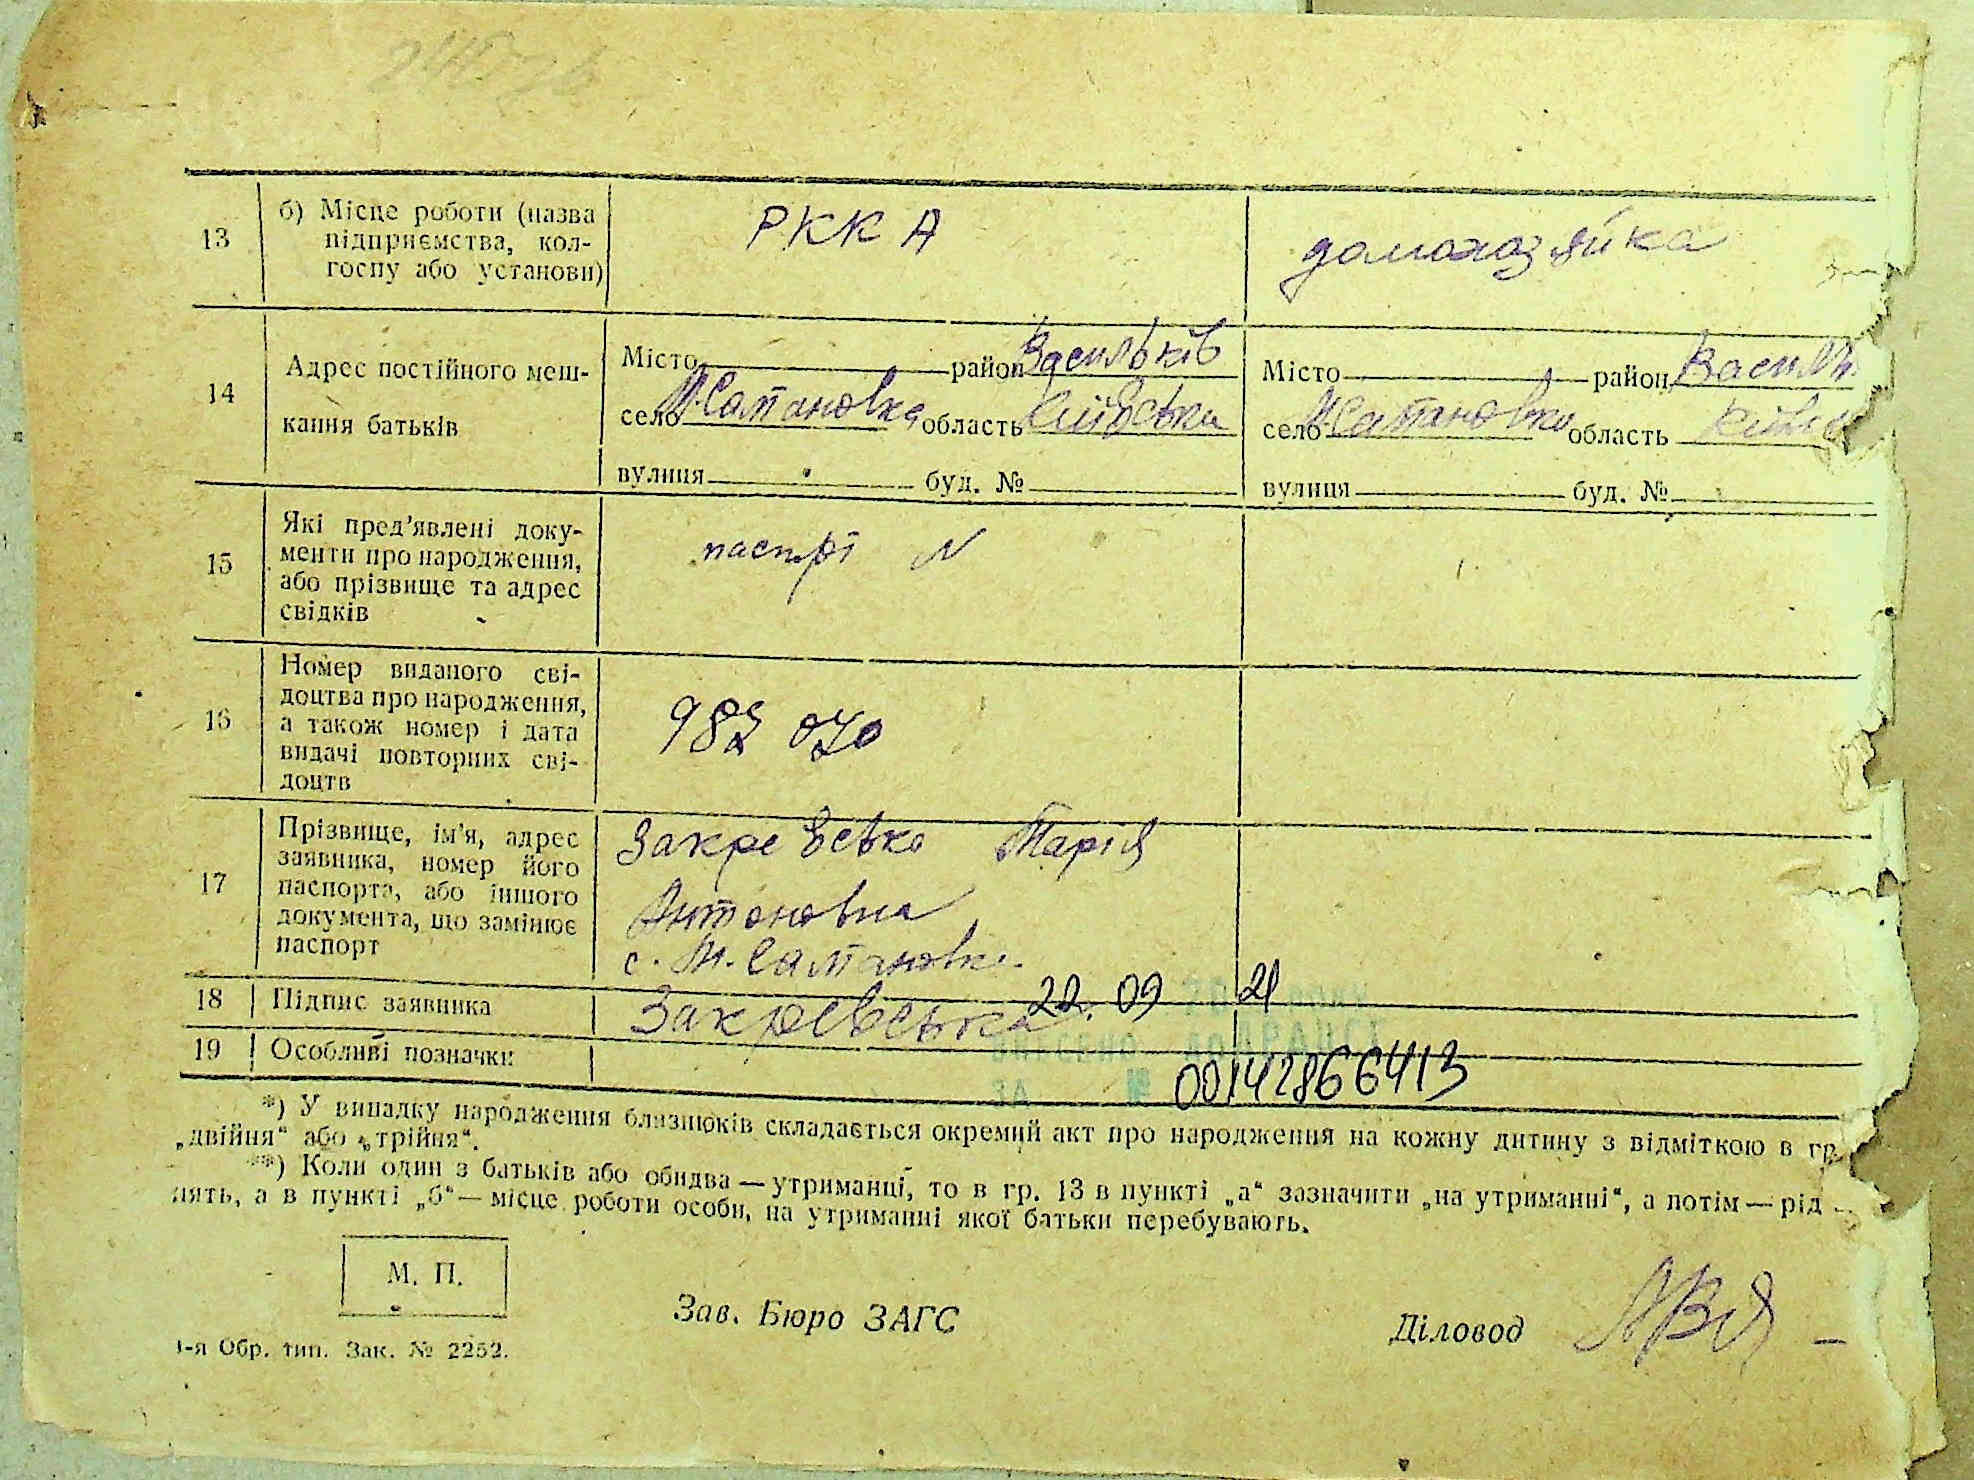 13
б) Місце роботи (назва
підприємства, кол-
госпу або установи)
РККА
домохозяйка
14
Адрес постійного меш-
кання батьків
Місто район Васильків
село М.Салтановка область Київська
вулиця буд. №
Місто район Василь
село М.Салтановка область Київсь
вулиця буд. №
15
Які пред'явлені доку-
менти про народження,
або прізвище та адрес
свідків
паспрт N
16
Номер виданого сві-
доцтва про народження,
а також номер і дата
видачі повторних сві-
доцтв
982 070
17
Прізвище, ім'я, адрес
заявника, номер його
паспорта, або іншого
документа, що замінює
паспорт
Закревська Марія
Антоновна
с. М. Салтановка.
18 Підпис заявника
Закревська
22. 09 21
19 Особливі позначки
ВНЕСЕНО до ДРАЦСГ
ЗА № 00142866413
*) У випадку народження близнюків складається окремий акт про народження на кожну дитину з відміткою в гр.
„двійня“ або „трійня“.
**) Коли один з батьків або обидва — утриманці, то в гр. 13 в пункті „а“ зазначити „на утриманні“, а потім — рід
нять, а в пункті „б“ — місце роботи особи, на утриманні якої батьки перебувають.
М. П.
Зав. Бюро ЗАГС
Діловод
1-я Обр. тип. Зак. № 2252.